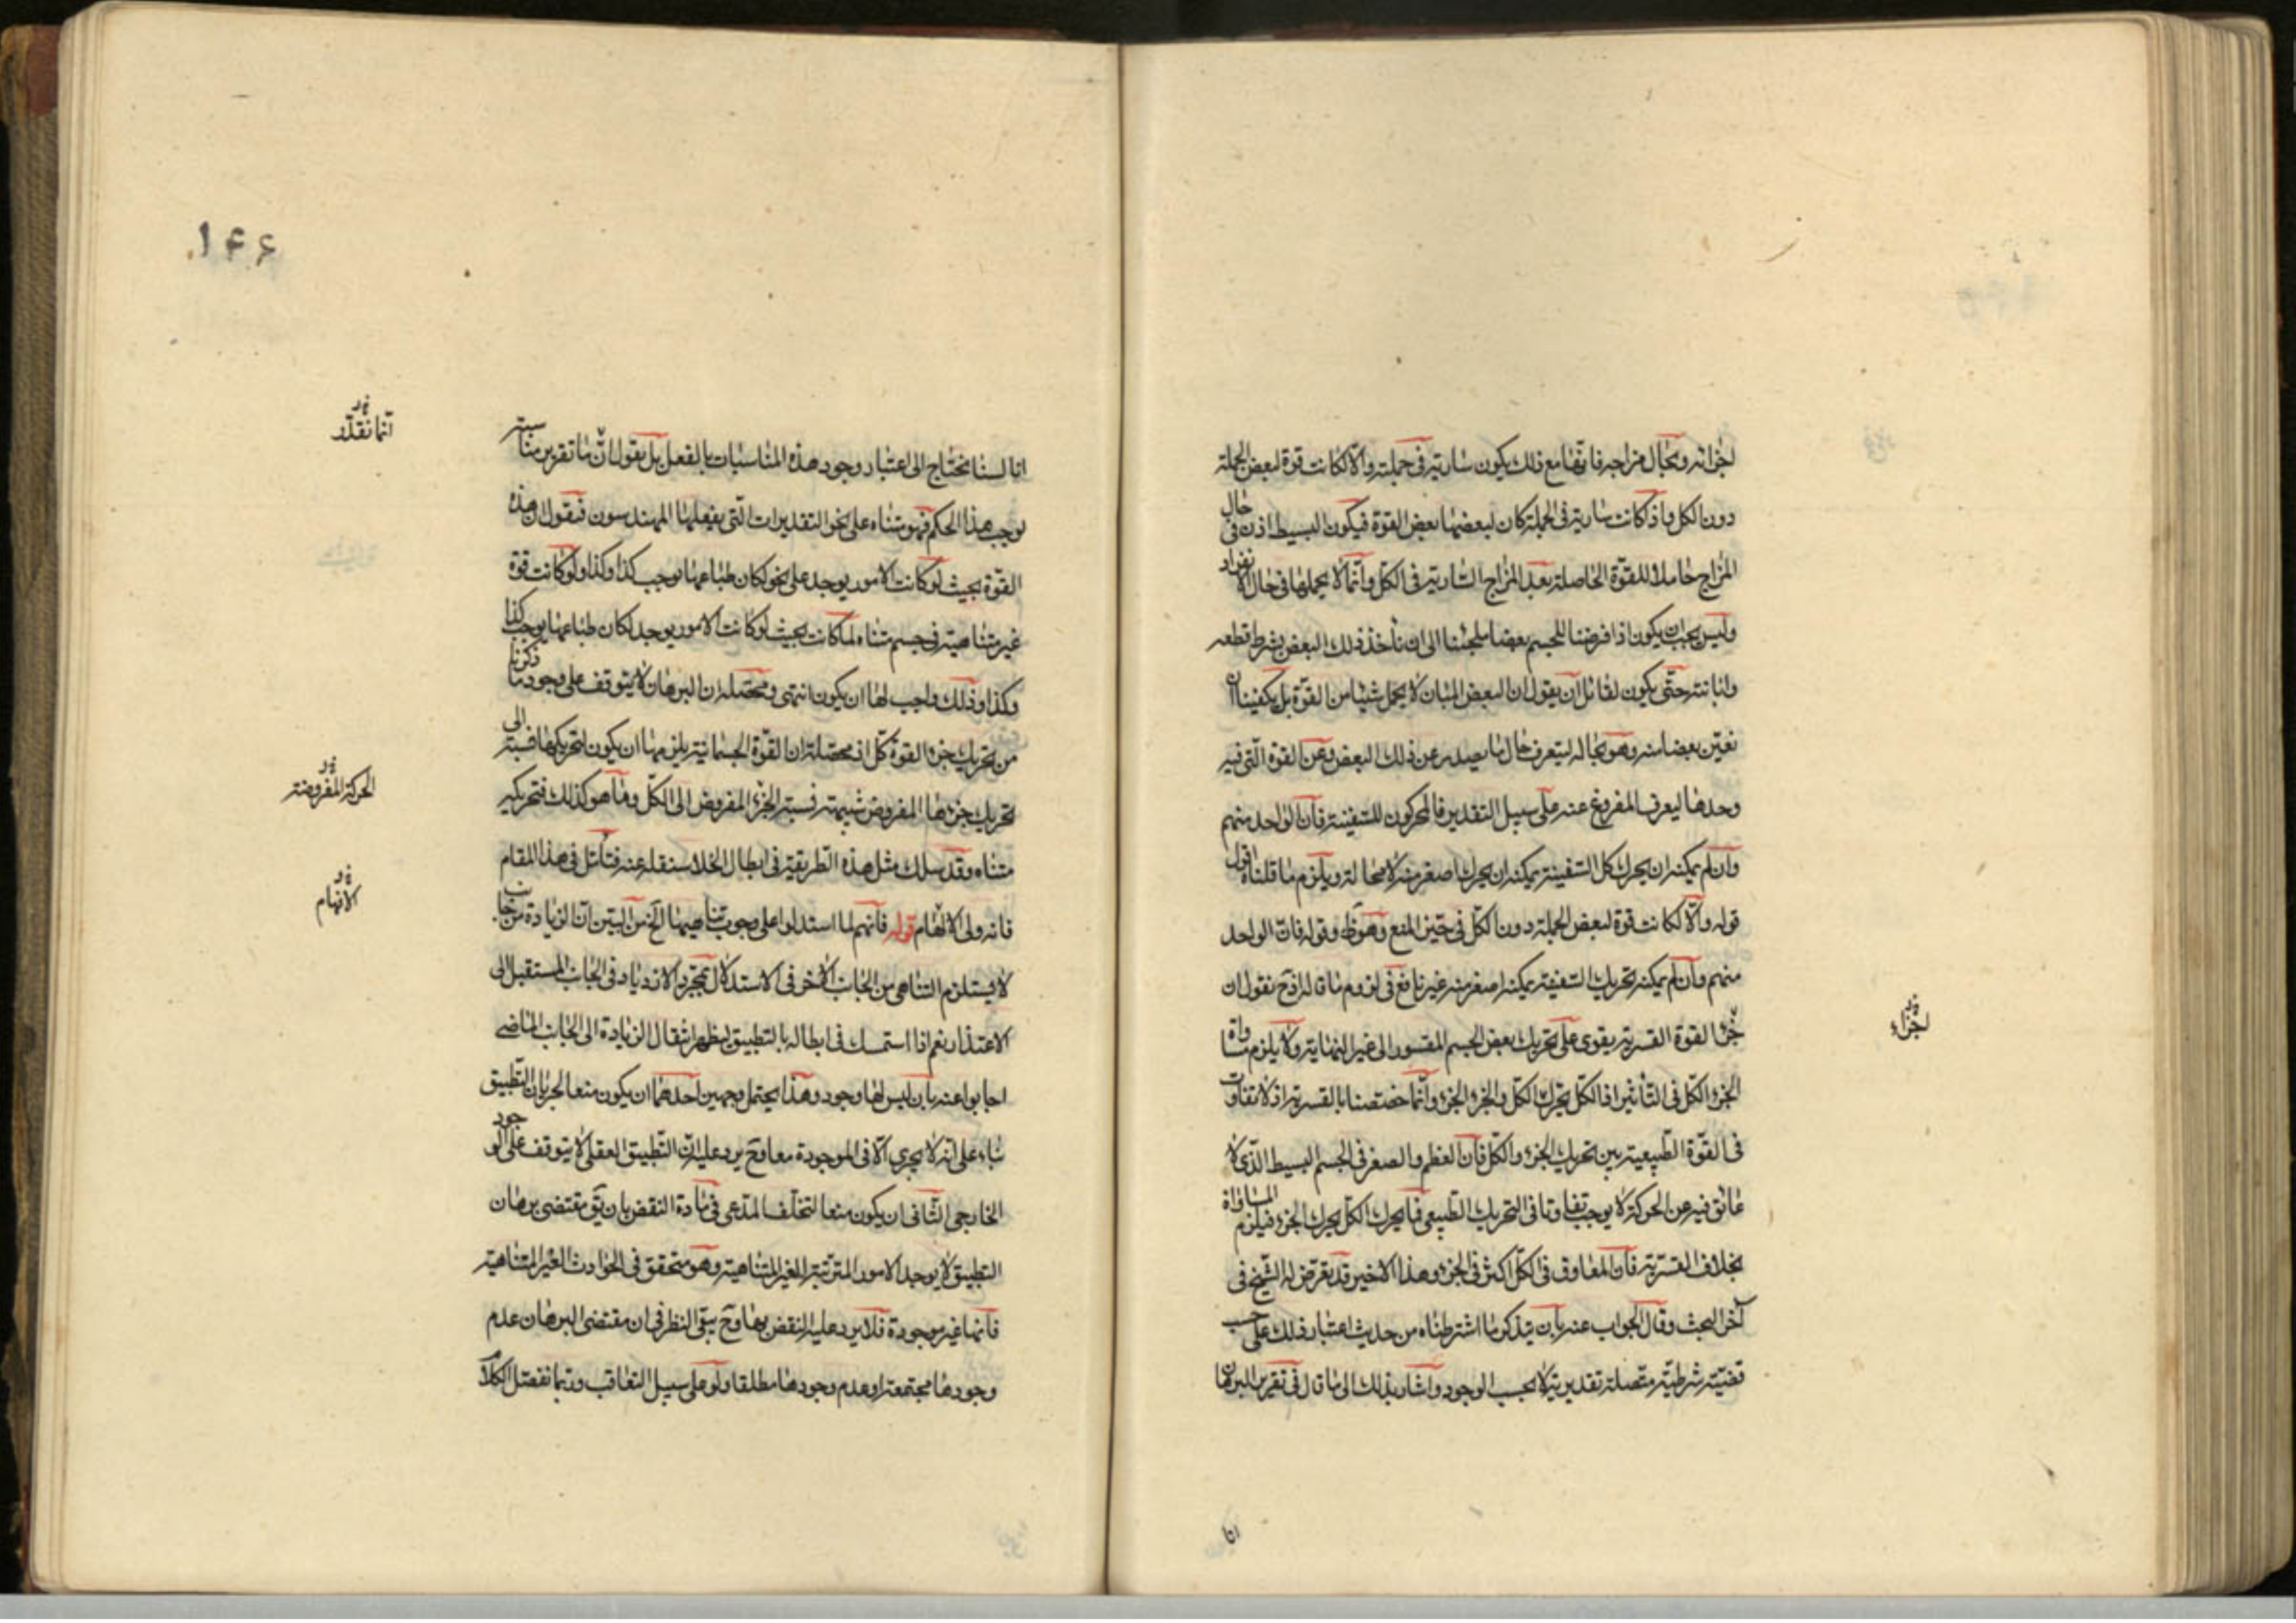 اجزائه وبحال مزاجه فانها مع ذلك يكون سارية في جملته والا لكانت قوة لبعض الجملة
دون الكل واذ كانت سارية في الجملة كان لبعضها بعض القوة فيكون البسيط اذن في حال
المزاج حاملا للقوة الحاصلة بعد المزاج السارية في الكل وانما لا يحملها في حال الانفراد
وليس يجب ان يكون اذا فرضنا للجسم بعضا ملجئنا الى ان نأخذ ذلك البعض بشرط قطعه
وابانته حتى يكون لقائل ان يقول ان البعض المبان لا يحمل شيئا من القوة بل يكفينا ان
نعين بعضا منه وهو بحاله ليتعرف حال ما يصدر عن ذلك البعض وعن القوة التي فيه
وحدها ليعرف المفروغ عنه على سبيل التقدير فالمحركون للسفينة فان الواحد منهم
وان لم يمكنه ان يحرك كل السفينة يمكنه ان يحرك اصغر منه لا محالة ويلزم ما قلناه اقول
قوله والا لكانت قوة لبعض الجملة دون الكل في حيز المنع وهو ظ وقوله فان الواحد
منهم وان لم يمكنه تحريك السفينة يمكنه اصغر منه غير نافع في لزوم ما قاله اذ ح نقول ان
جزء القوة القسرية يقوى على تحريك بعض الجسم المقسور الى غير النهاية ولا يلزم مساواة
الجزء الكل في التأثير اذ الكل يحرك الكل والجزء الجزء وانما خصصنا بالقسرية اذ لا تفاوت
في القوة الطبيعية بين تحريك الجزء والكل فان العظم والصغر في الجسم البسيط الذي لا
عائق فيه عن الحركة لا يوجب تفاوتا في التحريك الطبيعي فما يحرك الكل يحرك الجزء فيلزم المساواة
بخلاف القسرية فان المعاوق في الكل اكثر في الجزء وهذا الاخير قد تعرض له الشيخ في
آخر البحث وقال الجواب عنه بان يتذكر ما اشترطناه من حديث اعتبار ذلك على حسب
قضية شرطية متصلة تقديرية لا بحسب الوجود واشار بذلك الى ما قال في تقرير البرهان
لجزاء
انا
١٤٤
انا لسنا نحتاج الى اعتبار وجود هذه المناسبات بالفعل بل نقول ان ما تقرير مناسبته
يوجب هذا الحكم فهو متناه على نحو التقديرات التي يفعلها المهندسون فنقول ان هذه
القوة بحيث لو كانت الامور يوجد على نحو لكان طباعها يوجب كذا وكذا ولو كانت قوة
غير متناهية في جسم متناه لما كانت بحيث لو كانت الامور يوجد لكان طباعها يوجب كذا
وكذا وذلك واجب لها ان يكون انتهى ومحصله ان البرهان لا يتوقف على وجود ما ذكرنا
من تحريك جزء القوة كل اذ محصله ان القوة الجسمانية يلزمها ان يكون لتحريكها نسبة الى
تحريك جزءها المفروض شبيهة نسبة الجزء المفروض الى الكل وما هو كذلك فتحريكه
متناه وقد سلك مثل هذه الطريقة في ابطال الخلا سننقله عنه فتأمل في هذا المقام
فانه ولى الالهام قوله فانهم لما استدلوا على وجوب تناهيها الخ من البين ان الزيادة من جانب
لا يستلزم التناهي من الجانب الآخر ففي الاستدلال بمجرد الازدياد في الجانب المستقبل الى
الاعتذار نعم اذا استمسك في ابطاله بالتطبيق ليظهر انتقال الزيادة الى الجانب الماضي
اجابوا عنه بان ليس لها وجود وهذا يحتمل وجهين احدهما ان يكون منعا لجريان التطبيق
بناء على انه لا يجري الا في الموجودة معا وح يرد عليه ان التطبيق العقلي لا يتوقف على الوجود
الخارجي الثاني ان يكون منعا لتخلف المدعى في مادة النقض بان يق مقتضى برهان
التطبيق لا يوجد الامور المترتبة الغير المتناهية وهو متحقق في الحوادث الغير المتناهية
فانها غير موجودة فلا يرد عليه النقض بها وح يبقى النظر في ان مقتضى البرهان عدم
وجودها مجتمعة او عدم وجودها مطلقا ولو على سبيل التعاقب وربما نفصل الكلام
انما نقدر
الحركة المفروضة
الافهام